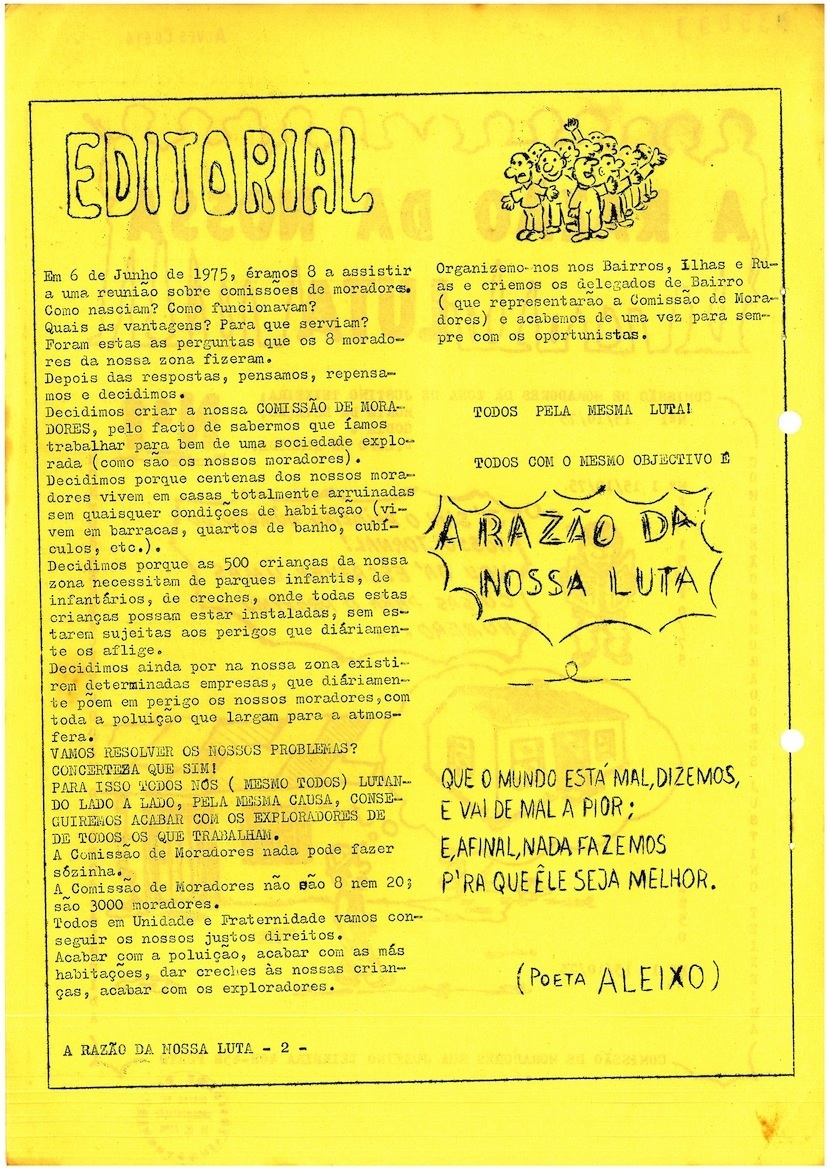 EDITORIAL
Em 6 de Junho de 1975, éramos 8 a assistir
a uma reunião sobre comissões de moradores.
Como nasciam? Como funcionavam?
Quais as vantagens? Para que serviam?
Foram estas as perguntas que os 8 morado-
res da nossa zona fizeram.
Depois das respostas, pensamos, repensa-
mos e decidimos.
Decidimos criar a nossa COMISSÃO DE MORA-
DORES, pelo facto de sabermos que íamos
trabalhar para bem de uma sociedade explo-
rada (como são os nossos moradores).
Decidimos porque centenas dos nossos mora-
dores vivem em casas totalmente arruinadas
sem quaisquer condições de habitação (vi-
vem em barracas, quartos de banho, cubí-
culos, etc.).
Decidimos porque as 500 crianças da nossa
zona necessitam de parques infantis, de
infantários, de creches, onde todas estas
crianças possam estar instaladas, sem es-
tarem sujeitas aos perigos que diáriamen-
te os aflige.
Decidimos ainda por na nossa zona existi-
rem determinadas empresas, que diáriamen-
te põem em perigo os nossos moradores,com
toda a poluição que largam para a atmos-
fera.
VAMOS RESOLVER OS NOSSOS PROBLEMAS?
CONCERTEZA QUE SIM!
PARA ISSO TODOS NÓS ( MESMO TODOS) LUTAN-
DO LADO A LADO, PELA MESMA CAUSA, CONSE-
GUIREMOS ACABAR COM OS EXPLORADORES DE
DE TODOS OS QUE TRABALHAM.
A Comissão de Moradores nada pode fazer
sózinha.
A Comissão de Moradores não são 8 nem 20;
são 3000 moradores.
Todos em Unidade e Fraternidade vamos con-
seguir os nossos justos direitos.
Acabar com a poluição, acabar com as más
habitações, dar creches às nossas crian-
ças, acabar com os exploradores.
A RAZÃO DA NOSSA LUTA - 2 -
Organizemo-nos nos Bairros, Ilhas e Ru-
as e criemos os delegados de Bairro
( que representarão a Comissão de Mora-
dores) e acabemos de uma vez para sem-
pre com os oportunistas.
TODOS PELA MESMA LUTA!
TODOS COM O MESMO OBJECTIVO É
A RAZÃO DA
NOSSA LUTA
QUE O MUNDO ESTÁ MAL, DIZEMOS,
E VAI DE MAL A PIOR;
E, AFINAL, NADA FAZEMOS
P'RA QUE ÊLE SEJA MELHOR.
(POETA ALEIXO)